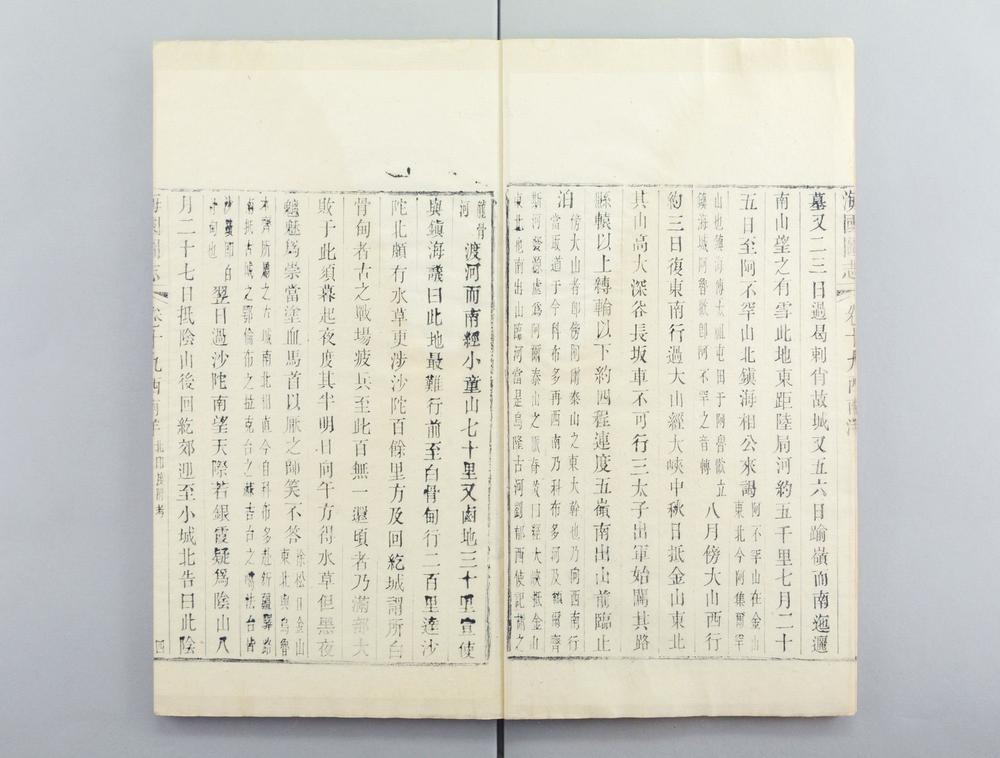 海國圖志　卷二十九西南洋
墓又二三日過曷剌肖故城又五六日踰嶺而南迤邐
南山望之有雪此地東距陸局河約五千里七月二十
五日至阿不罕山北鎮海相公來謁
阿不罕山在金山
東北今阿集爾罕
山也鎮海傳太祖屯田于阿魯歡立
鎮海城阿魯歡即阿不罕之音轉
八月傍大山西行
約三日復東南行過大山經大峽中秋日抵金山東北
其山高大深谷長坂車不可行三太子出軍始闢其路
縣轅以上縛輪以下約四程連度五嶺南出山前臨止
泊
傍大山者即傍阿爾泰山之東大幹也乃向西南行
當取道于今科布多再西南乃科布多河及額爾齊
斯河發源處爲阿爾泰山之脈脊故曰經大峽抵金山
東北也南出山臨河當是烏隆古河劉郁西使記謂之
龍骨
河
渡河而南經小童山七十里又鹵地三十里宣使
與鎮海議曰此地最難行前至白骨甸行二百里達沙
陀北頗有水草更涉沙陀百餘里方及回紇城謂所白
骨甸者古之戰場疲兵至此百無一還頃者乃滿部大
敗于此須暮起夜度其半明日向午方得水草但黑夜
魑魅爲祟當塗血馬首以厭之師笑不答
徐松曰金山
東北與烏魯
木齊所屬之古城南北相直今自科布多赴新疆驛路
南抵古城之鄂倫布之拉克台之蘇吉台之噶法台皆
沙磧即白
骨甸也
翌日過沙陀南望天際若銀霞疑爲陰山八
月二十七日抵陰山後回紇郊迎至小城北告曰此陰
海國圖志　卷二十九西南洋　北印度附考　四